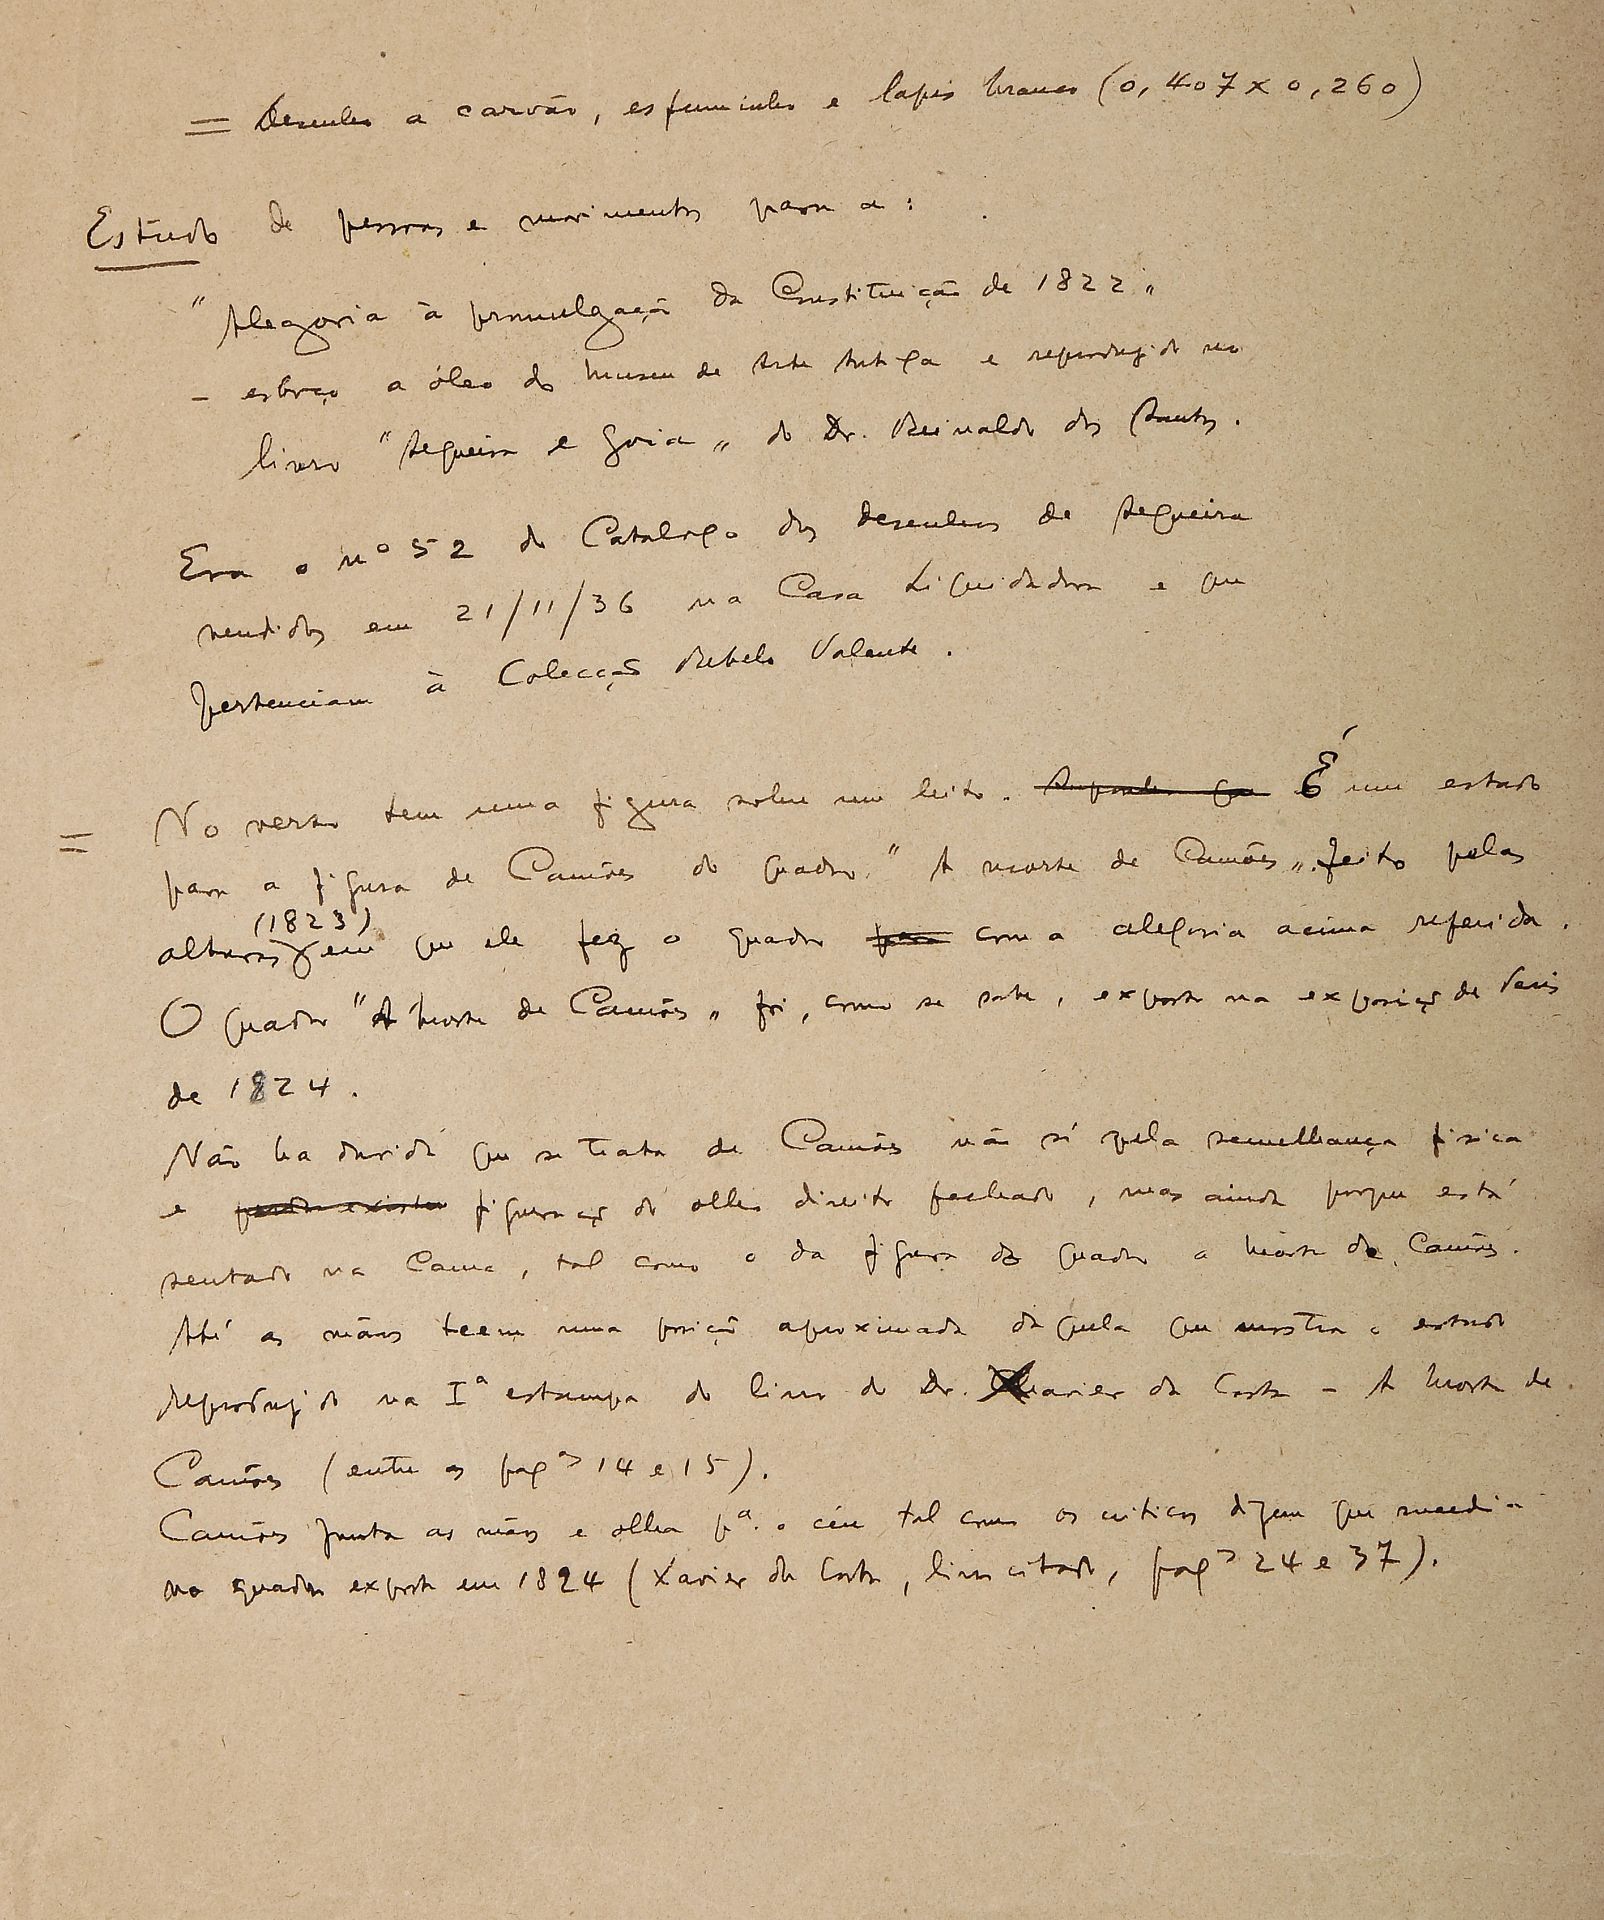 = Desenho a carvão, esfuminho e lapis branco (0,407 x 0,260)
Estudo de pessoas e movimentos para a:
"Alegoria à promulgação da Constituição de 1822„
- esboço a óleo do Museu de Arte Antiga e reproduzido no
livro "Sequeira e Goia„ do Dr. Reinaldo dos Santos.
Era o nº 52 do Catalogo dos desenhos de Sequeira
vendidos em 21/11/36 na Casa Liquidadora e que
pertenciam à Colecção Rebelo Valente.
= No verso tem uma figura sobre um leito. É um estudo
para a figura de Camões do quadro "A morte de Camões„ feito pelas
(1823)
alturas em que ele fez o quadro para com a alegoria acima referida.
O quadro "A Morte de Camões„ foi, como se sabe, exposto na exposição de Paris
de 1824.
Não ha duvida que se trata de Camões não só pela semelhança fisica
e figuração do olho direito fechado, mas ainda porque está
sentado na cama, tal como o da figura do quadro a Morte de Camões.
Até as mãos teem uma posição aproximada daquela que mostra o estudo
reproduzido na Iª estampa do livro do Dr. Xavier da Costa - A Morte de
Camões (entre as pagˢ 14 e 15).
Camões junta as mãos e olha pª. o céu tal como os criticos dizem que sucedia
no quadro exposto em 1824 (Xavier da Costa, livro citado, pagˢ 24 e 37).